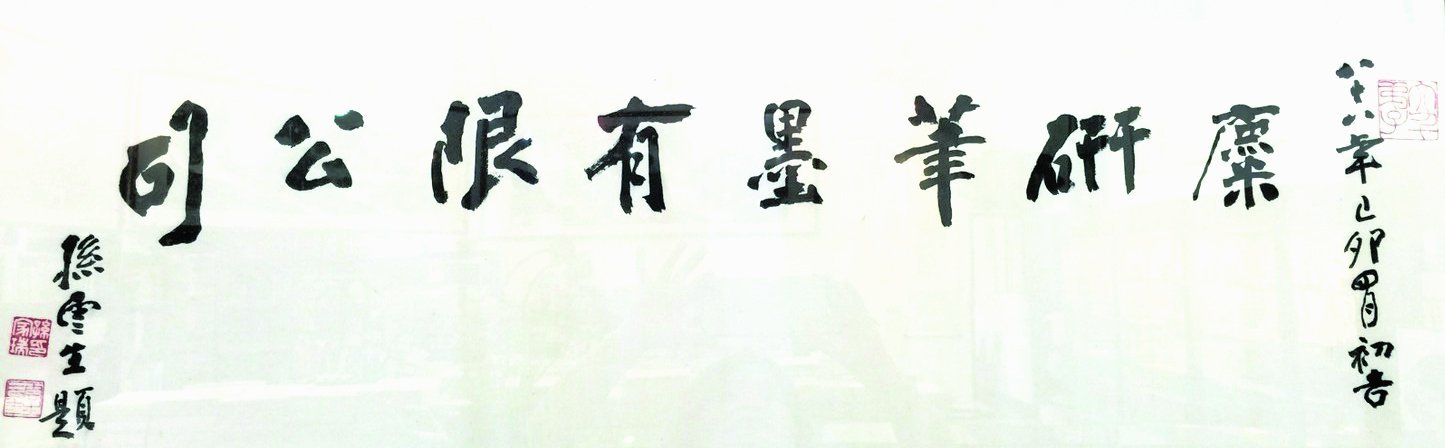 八十八年己卯四月初吉
麋研筆墨有限公司
孫雲生題
孫印家瑞